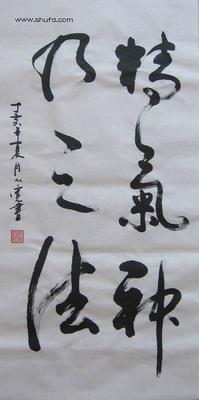 www.shufa.com
精氣神
乃之法
丁亥年夏月